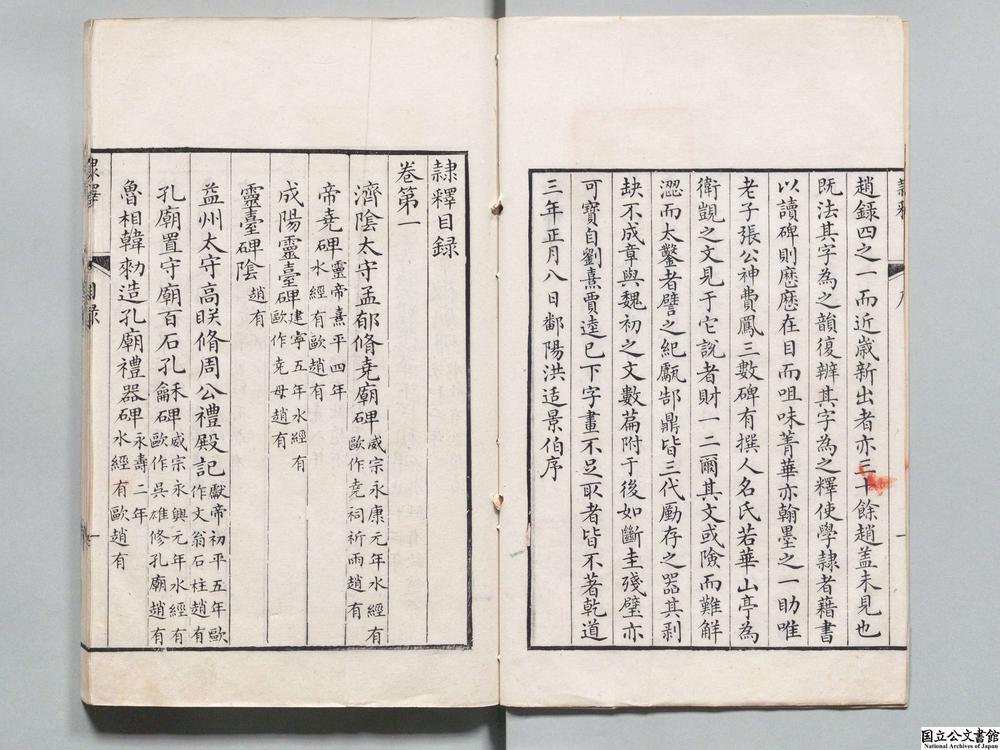 趙録四之一而近歲新出者亦三十餘趙盖未見也
既法其字為之韻復辨其字為之釋使學隷者藉書
以讀碑則歷歷在目而咀味菁華亦翰墨之一助唯
老子張公神費鳳三數碑有撰人名氏若華山亭為
衛覬之文見于它說者財一二爾其文或險而難觧
澀而太鑿者譬之紀甗郜鼎皆三代劘存之器其剥
缺不成章與魏初之文數篇附于後如斷圭殘璧亦
可寶自劉熹賈逵已下字畫不足取者皆不著乾道
三年正月八日鄱陽洪适景伯序
隷釋目録
卷第一
濟陰太守孟郁脩堯廟碑 威宗永康元年水經有 歐作堯祠祈雨趙有
帝堯碑 靈帝熹平四年 水經有歐趙有
成陽靈臺碑 建寧五年水經有 歐作堯母趙有
靈臺碑陰 趙有
益州太守高眹脩周公禮殿記 獻帝初平五年歐 作文翁石柱趙有
孔廟置守廟百石孔龢碑 威宗永興元年水經有 歐作吳雄修孔廟趙有
魯相韓勑造孔廟禮器碑 永壽二年 水經有歐趙有
隷釋
目録
一
国立公文書館
National Archives of Japan